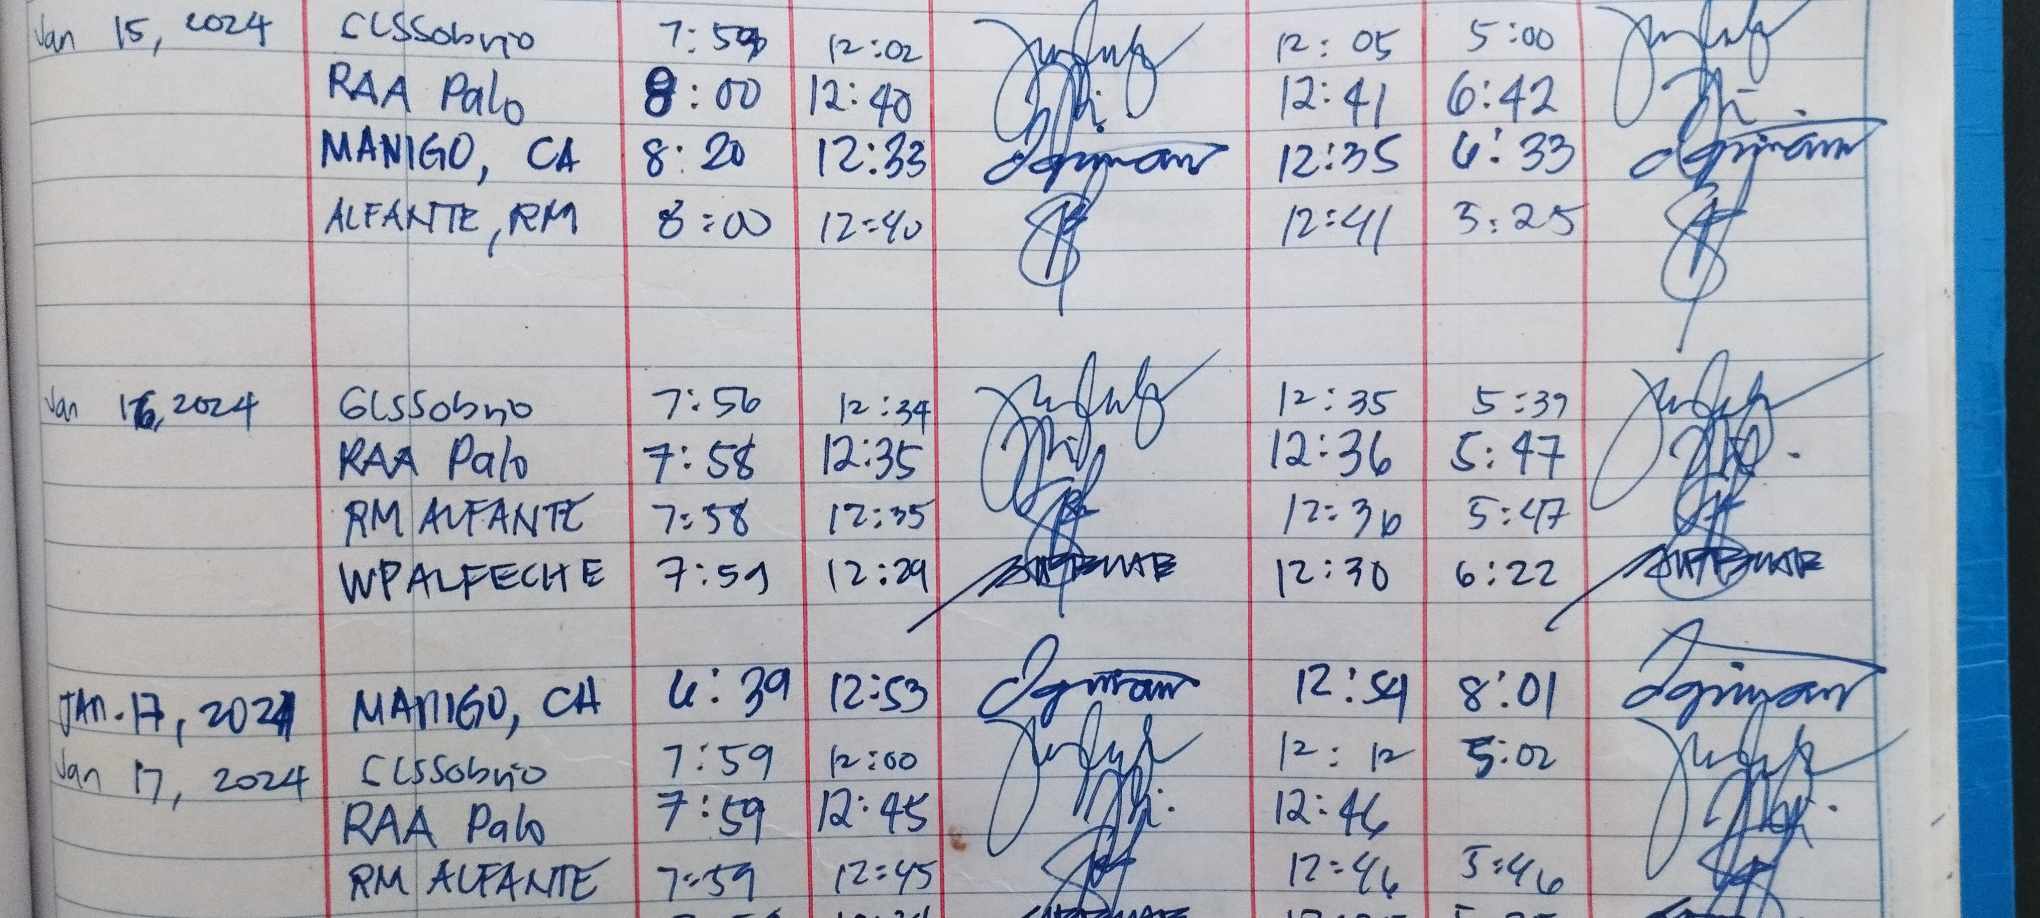 Jan 15, 2024 CLSSobrio 7:59 12:02 12:05 5:00
RAA Palo 8:00 12:40 12:41 6:42
MANIGO, CA 8:20 12:33 12:35 6:33
ALFANTE, RM 8:00 12:40 12:41 5:25
Jan 16, 2024 GLSSobrio 7:56 12:34 12:35 5:39
RAA Palo 7:58 12:35 12:36 5:47
RM ALFANTE 7:58 12:35 12:36 5:47
WPALFECHE 7:59 12:29 12:30 6:22
JAN. 17, 2024 MANIGO, CA 6:39 12:53 12:54 8:01
Jan 17, 2024 CLSSobrio 7:59 12:00 12:12 5:02
RAA Palo 7:59 12:45 12:46
RM ALFANTE 7:59 12:45 12:46 5:46